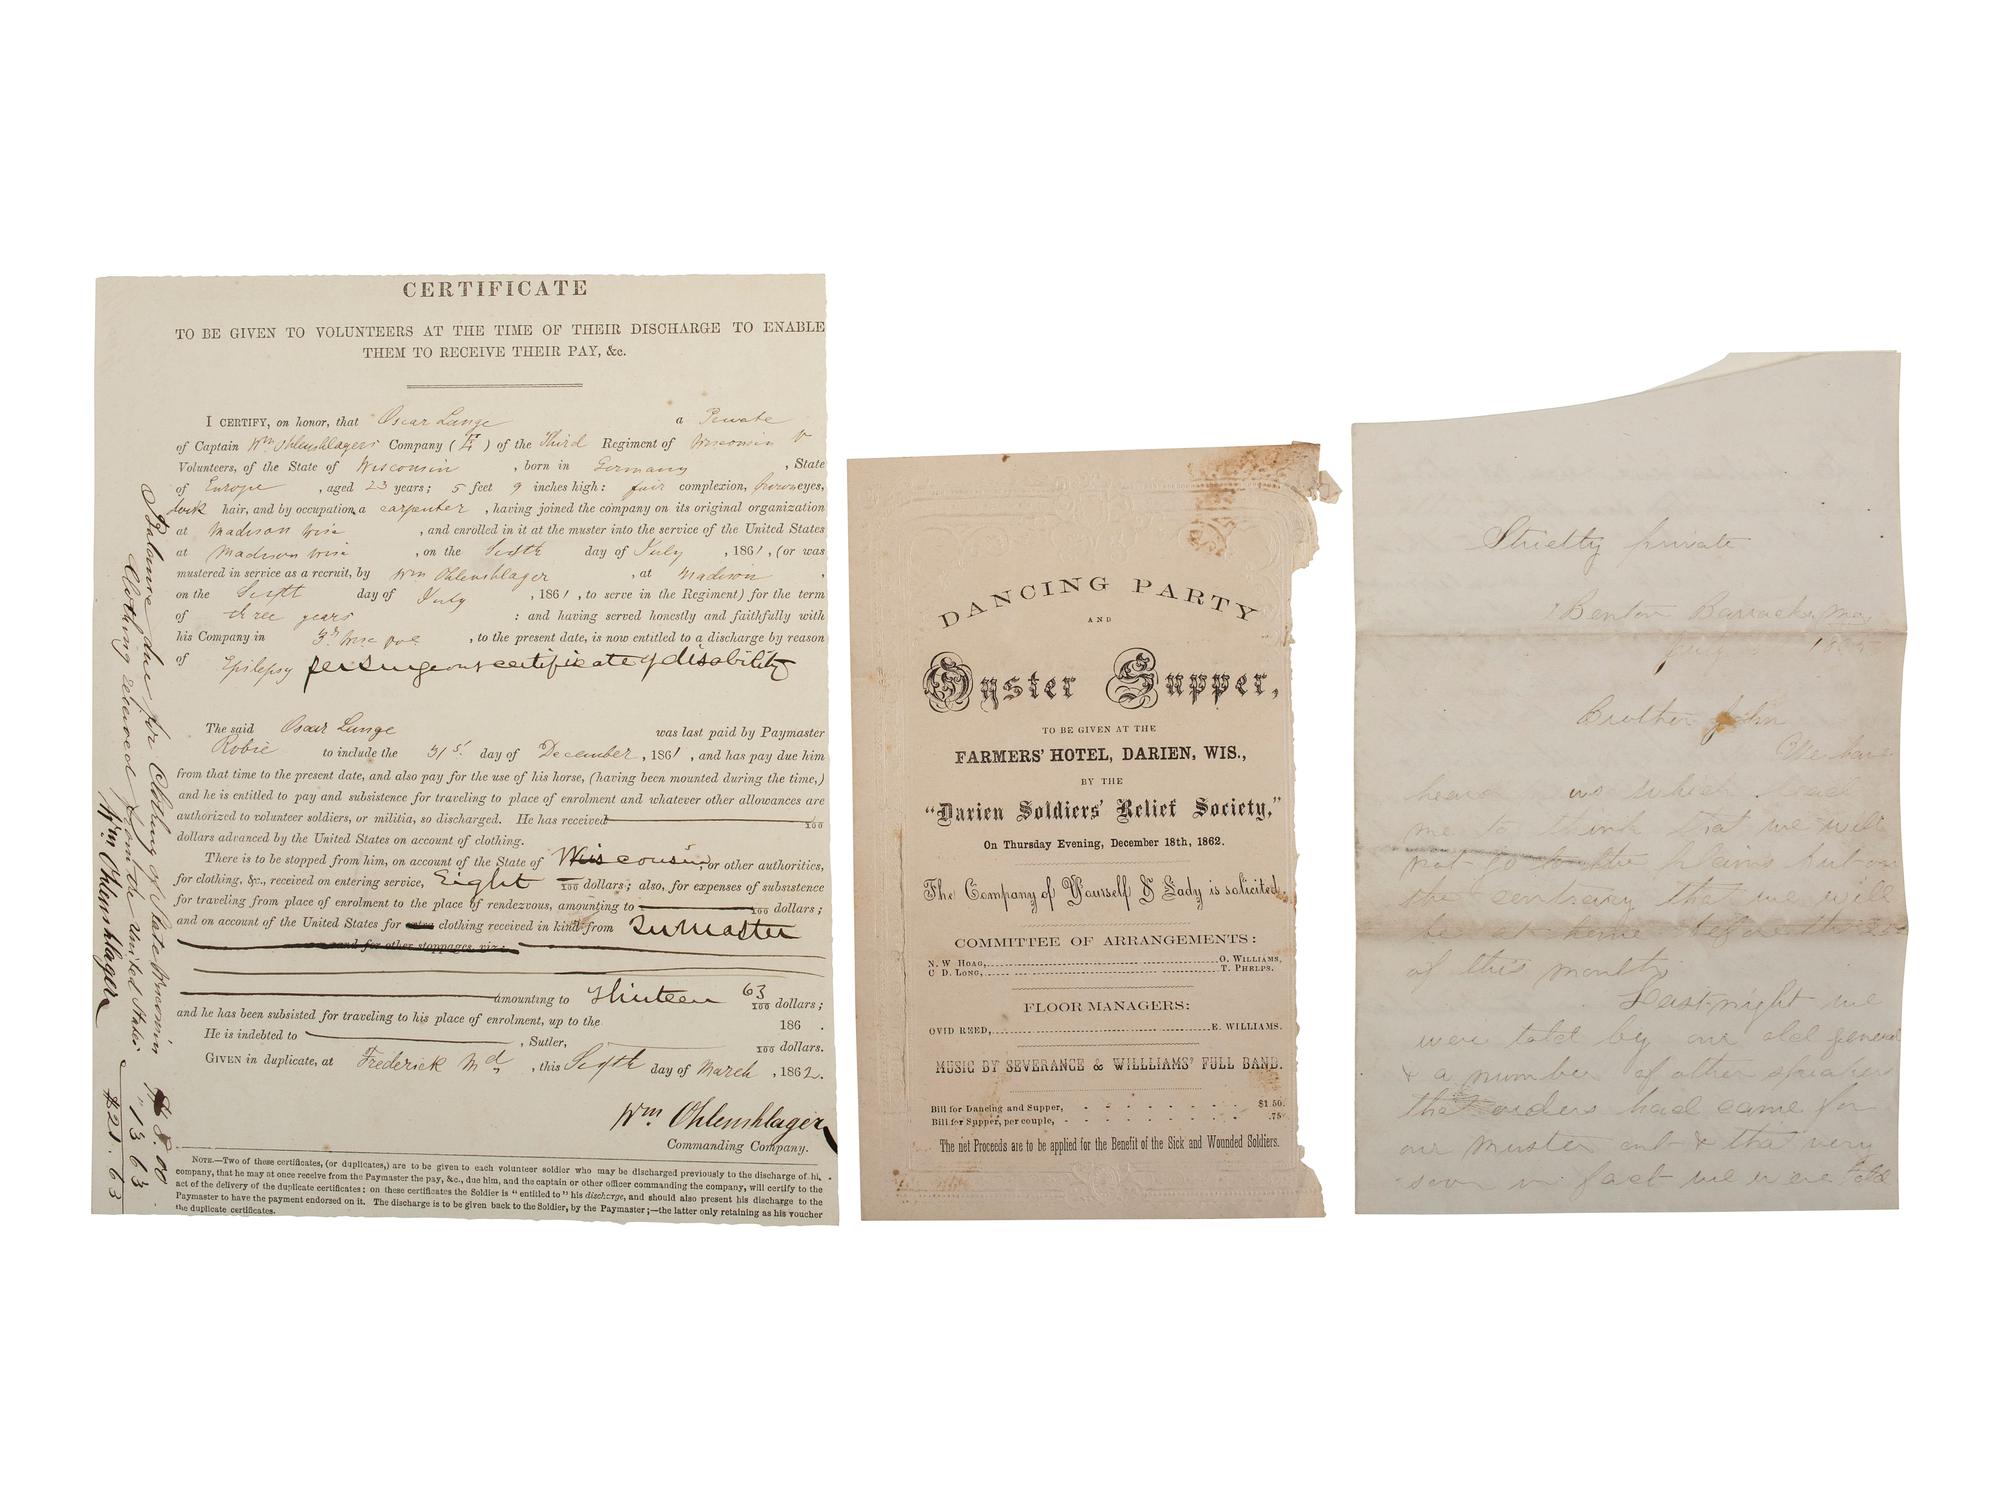 CERTIFICATE
TO BE GIVEN TO VOLUNTEERS AT THE TIME OF THEIR DISCHARGE TO ENABLE
THEM TO RECEIVE THEIR PAY, &c.
I CERTIFY, on honor, that Oscar Lunge a Private
of Captain Wm Ohlenshlagers Company (E) of the Third Regiment of Wisconsin V
Volunteers, of the State of Wisconsin , born in Germany , State
of Europe , aged 23 years; 5 feet 9 inches high: fair complexion, brown eyes,
dark hair, and by occupation, a carpenter , having joined the company on its original organization
at Madison Wis , and enrolled in it at the muster into the service of the United States
at Madison Wis , on the Sixth day of July , 1861, (or was
mustered in service as a recruit, by Wm Ohlenshlager , at Madison ,
on the Sixth day of July , 1861, to serve in the Regiment) for the term
of three years : and having served honestly and faithfully with
his Company in 3d Wis vol , to the present date, is now entitled to a discharge by reason
of Epilepsy per Surgeons certificate of disability
The said Oscar Lunge was last paid by Paymaster
Robie to include the 31st day of December , 1861 , and has pay due him
from that time to the present date, and also pay for the use of his horse, (having been mounted during the time,)
and he is entitled to pay and subsistence for traveling to place of enrolment and whatever other allowances are
authorized to volunteer soldiers, or militia, so discharged. He has received 100
dollars advanced by the United States on account of clothing.
There is to be stopped from him, on account of the State of Wisconsin, or other authorities,
for clothing, &c., received on entering service, Eight 100 dollars; also, for expenses of subsistence
for traveling from place of enrolment to the place of rendezvous, amounting to 100 dollars;
and on account of the United States for clothing received in kind from
and for other stoppages, viz:
amounting to Thirteen 63/100 dollars;
and he has been subsisted for traveling to his place of enrolment, up to the 186 .
He is indebted to , Sutler, 100 dollars.
GIVEN in duplicate, at Frederick Md , this Sixth day of March , 1862.
Wm Ohlenshlager
Commanding Company.
NOTE.—Two of these certificates, (or duplicates,) are to be given to each volunteer soldier who may be discharged previously to the discharge of hi
company, that he may at once receive from the Paymaster the pay, &c., due him, and the captain or other officer commanding the company, will certify to the
act of the delivery of the duplicate certificates: on these certificates the Soldier is "entitled to" his discharge, and should also present his discharge to the
Paymaster to have the payment endorsed on it. The discharge is to be given back to the Soldier, by the Paymaster;—the latter only retaining as his voucher
the duplicate certificates.
Balance due for Clothing of State Wisconsin $8.00
Clothing received from the United States " 13 63
Wm Ohlenshlager $21.63
DANCING PARTY
AND
Oyster Supper,
TO BE GIVEN AT THE
FARMERS' HOTEL, DARIEN, WIS.,
BY THE
"Darien Soldiers' Relief Society,"
On Thursday Evening, December 18th, 1862.
The Company of Yourself & Lady is solicited.
COMMITTEE OF ARRANGEMENTS:
N. W HOAG, O. WILLIAMS,
C D. LONG, T. PHELPS.
FLOOR MANAGERS:
OVID REED, E. WILLIAMS.
MUSIC BY SEVERANCE & WILLLIAMS' FULL BAND.
Bill for Dancing and Supper, - - - - - - - $1.50.
Bill for Supper, per couple, - - - - - - - .75
The net Proceeds are to be applied for the Benefit of the Sick and Wounded Soldiers.
Strictly private
Benton Barracks, Mo,
July 1865
Brother John
We have
heard which lead
me to think that we will
not go to the plains but on
the contrary that we will
be at home before the
of this month
Last night we
were told by our old general
& a number of other speakers
that orders had came for
our muster out & that very
soon in fact we were told